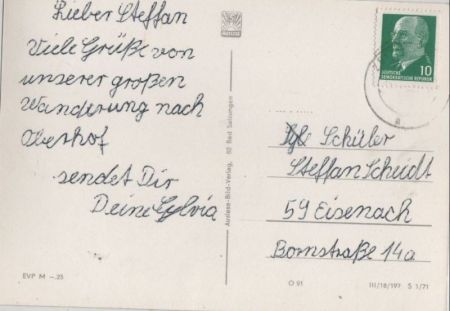 Lieber Steffan
Viele Grüße von
unserer großen
Wanderung nach
Oberhof
sendet Dir
Deine Sylvia
EVP M –.25
Auslese-Bild-Verlag, 62 Bad Salzungen
10
DEUTSCHE
DEMOKRATISCHE REPUBLIK
Schüler
Steffan Schudt
59 Eisenach
Bornstraße 14a
O 91 III/18/197 S 1/71